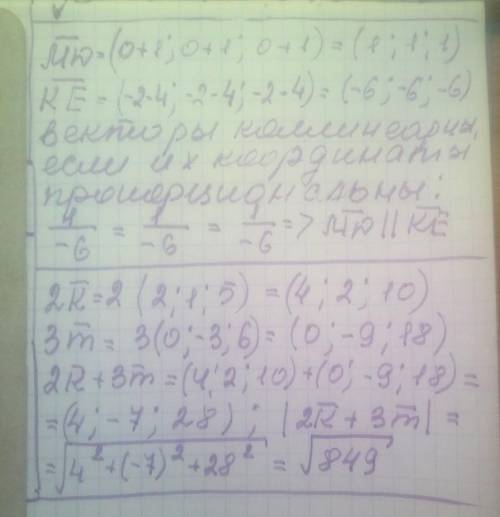 MD=(0+1; 0+1; 0+1) = (1; 1; 1)
KE = (-2-4; -2-4; -2-4) = (-6; -6; -6)
векторы коллинеарны,
если их координаты
пропорциональны:
1/-6 = 1/-6 = 1/-6 => MD || KE
2k = 2 (2; 1; 5) = (4; 2; 10)
3m = 3(0; -3; 6) = (0; -9; 18)
2k + 3m = (4; 2; 10) + (0; -9; 18) =
= (4; -7; 28) ; |2k + 3m| =
= √4² + (-7)² + 28² = √849